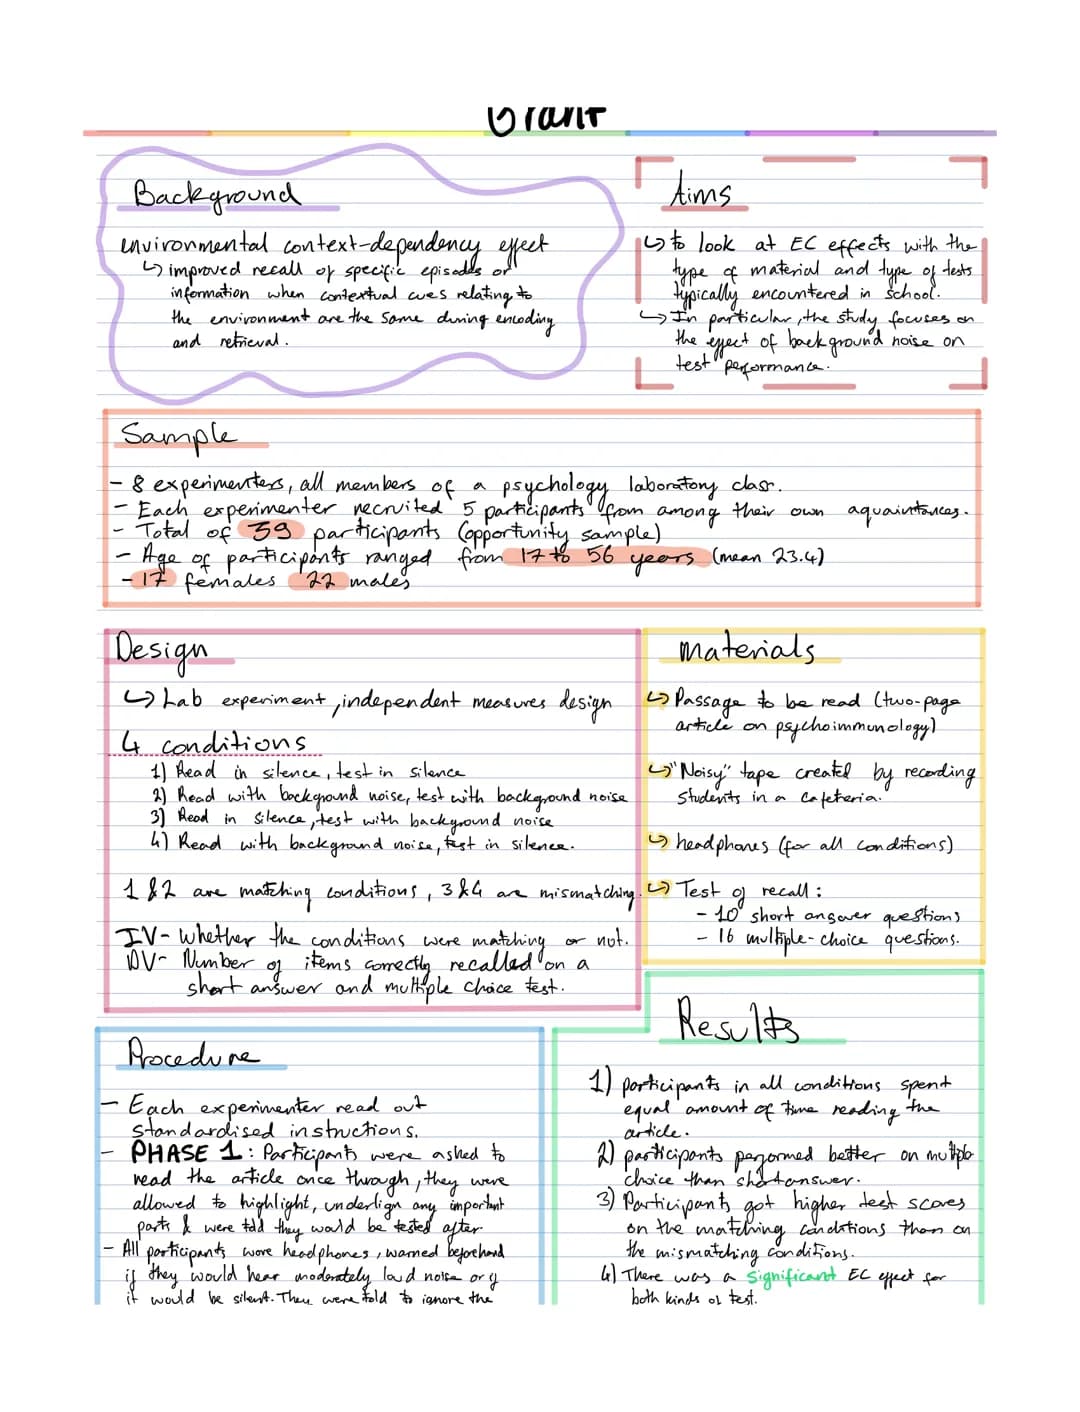 Grant
Background
environmental context-dependency effect
↳ improved recall of specific episodes or
information when contextual cues relating to
the environment are the same during encoding
and retrieval.
Aims
↳ to look at EC effects with the
type of material and type of tests
typically encountered in school.
↳ In particular, the study focuses on
the effect of background noise on
test performance.
Sample
- 8 experimenters, all members of a psychology laboratory class.
- Each experimenter recruited 5 participants from among their own aquaintances.
- Total of 39 participants (opportunity sample)
- Age of participants ranged from 17 to 56 years (mean 23.4)
- 17 females 22 males
Design
↳ Lab experiment, independent measures design
4 conditions
1) Read in silence, test in silence
2) Read with background noise, test with background noise
3) Read in silence, test with background noise
4) Read with background noise, test in silence.
1 & 2 are matching conditions, 3 & 4 are mismatching.
IV- Whether the conditions were matching or not.
DV- Number of items correctly recalled on a
short answer and multiple choice test.
Materials
↳ Passage to be read (two-page
article on psychoimmunology)
↳ "Noisy" tape created by recording
students in a cafeteria.
↳ headphones (for all conditions)
↳ Test of recall:
- 10 short answer questions
- 16 multiple-choice questions.
Procedure
- Each experimenter read out
standardised instructions.
- PHASE 1: Participants were asked to
read the article once through, they were
allowed to highlight, underlign any important
parts & were told they would be tested after.
- All participants wore headphones, warned beforehand
if they would hear moderately loud noise or if
it would be silent. They were told to ignore the
Results
1) participants in all conditions spent
equal amount of time reading the
article.
2) participants performed better on multiple
choice than short answer.
3) Participants got higher test scores
on the matching conditions than on
the mismatching conditions.
4) There was a significant EC effect for
both kinds of test.